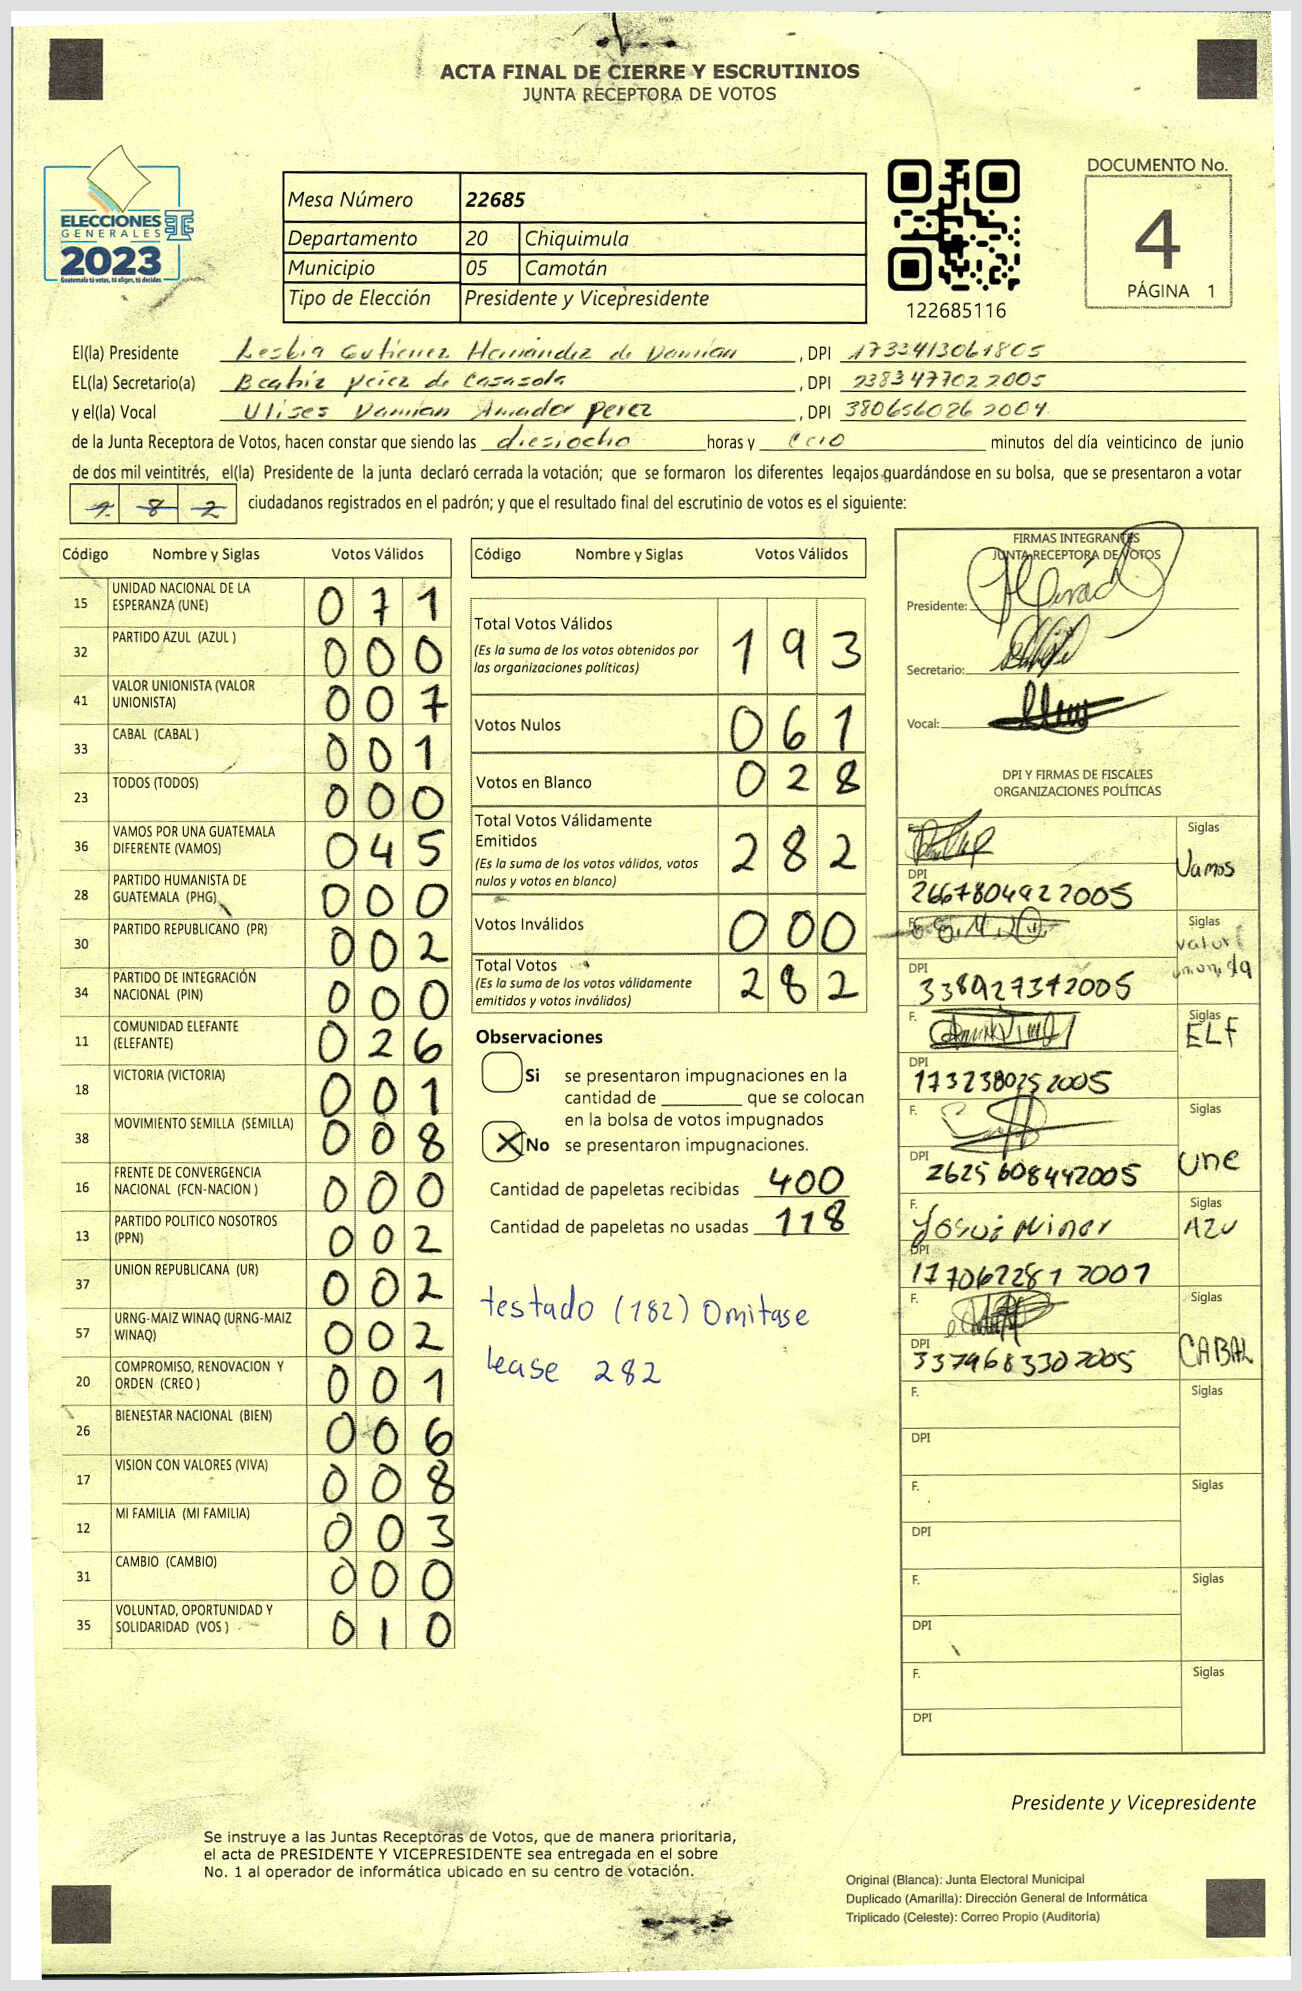 ACTA FINAL DE CIERRE Y ESCRUTINIOS
JUNTA RECEPTORA DE VOTOS
ELECCIONES
GENERALES
2023
Guatemala tú votas, tú eliges, tú decides
Mesa Número 22685
Departamento 20 Chiquimula
Municipio 05 Camotán
Tipo de Elección Presidente y Vicepresidente
122685116
DOCUMENTO No.
4
PÁGINA 1
El(la) Presidente Lesbia Gutierrez Hernández de Damian, DPI 1733413061805
EL(la) Secretario(a) Beatriz Pérez de Casasola, DPI 2383477022005
y el(la) Vocal Ulises Damian Amador perez, DPI 3806560262004
de la Junta Receptora de Votos, hacen constar que siendo las diesiocho horas y cero minutos del día veinticinco de junio
de dos mil veintitrés, el(la) Presidente de la junta declaró cerrada la votación; que se formaron los diferentes legajos guardándose en su bolsa, que se presentaron a votar
182 ciudadanos registrados en el padrón; y que el resultado final del escrutinio de votos es el siguiente:
Código Nombre y Siglas Votos Válidos
15 UNIDAD NACIONAL DE LA ESPERANZA (UNE) 071
32 PARTIDO AZUL (AZUL ) 000
41 VALOR UNIONISTA (VALOR UNIONISTA) 007
33 CABAL (CABAL ) 001
23 TODOS (TODOS) 000
36 VAMOS POR UNA GUATEMALA DIFERENTE (VAMOS) 045
28 PARTIDO HUMANISTA DE GUATEMALA (PHG) 000
30 PARTIDO REPUBLICANO (PR) 002
34 PARTIDO DE INTEGRACIÓN NACIONAL (PIN) 000
11 COMUNIDAD ELEFANTE (ELEFANTE) 026
18 VICTORIA (VICTORIA) 001
38 MOVIMIENTO SEMILLA (SEMILLA) 008
16 FRENTE DE CONVERGENCIA NACIONAL (FCN-NACION ) 000
13 PARTIDO POLITICO NOSOTROS (PPN) 002
37 UNION REPUBLICANA (UR) 002
57 URNG-MAIZ WINAQ (URNG-MAIZ WINAQ) 002
20 COMPROMISO, RENOVACION Y ORDEN (CREO ) 001
26 BIENESTAR NACIONAL (BIEN) 006
17 VISION CON VALORES (VIVA) 008
12 MI FAMILIA (MI FAMILIA) 003
31 CAMBIO (CAMBIO) 000
35 VOLUNTAD, OPORTUNIDAD Y SOLIDARIDAD (VOS ) 010
Código Nombre y Siglas Votos Válidos
Total Votos Válidos 193
(Es la suma de los votos obtenidos por
las organizaciones políticas)
Votos Nulos 061
Votos en Blanco 028
Total Votos Válidamente
Emitidos 282
(Es la suma de los votos válidos, votos
nulos y votos en blanco)
Votos Inválidos 000
Total Votos 282
(Es la suma de los votos válidamente
emitidos y votos inválidos)
Observaciones
Si se presentaron impugnaciones en la
cantidad de ________ que se colocan
en la bolsa de votos impugnados
X No se presentaron impugnaciones.
Cantidad de papeletas recibidas 400
Cantidad de papeletas no usadas 118
testado (182) Omitase
lease 282
FIRMAS INTEGRANTES
JUNTA RECEPTORA DE VOTOS
Presidente:
Secretario:
Vocal:
DPI Y FIRMAS DE FISCALES
ORGANIZACIONES POLÍTICAS
F. Siglas
Vamos
DPI
2667804922005
F. Siglas
valor
DPI
338927372005
F. Siglas
ELF
DPI
1732380252005
F. Siglas
une
DPI
2625608442005
F. Siglas
Josué Minor AZU
DPI
1770622812007
F. Siglas
CABAL
DPI
3379683302005
F. Siglas
DPI
F. Siglas
DPI
F. Siglas
DPI
F. Siglas
DPI
Presidente y Vicepresidente
Se instruye a las Juntas Receptoras de Votos, que de manera prioritaria,
el acta de PRESIDENTE Y VICEPRESIDENTE sea entregada en el sobre
No. 1 al operador de informática ubicado en su centro de votación.
Original (Blanca): Junta Electoral Municipal
Duplicado (Amarilla): Dirección General de Informática
Triplicado (Celeste): Correo Propio (Auditoría)